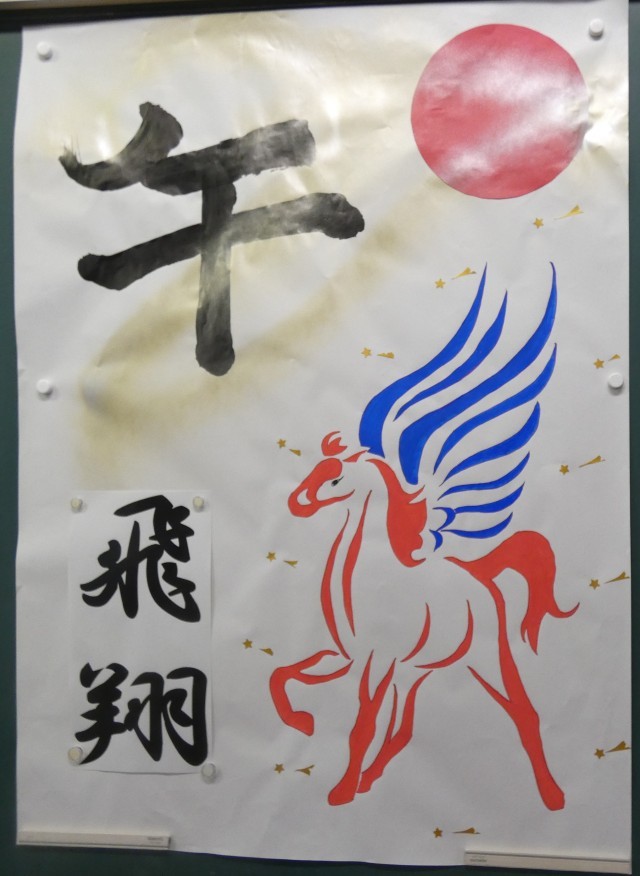 午
飛翔